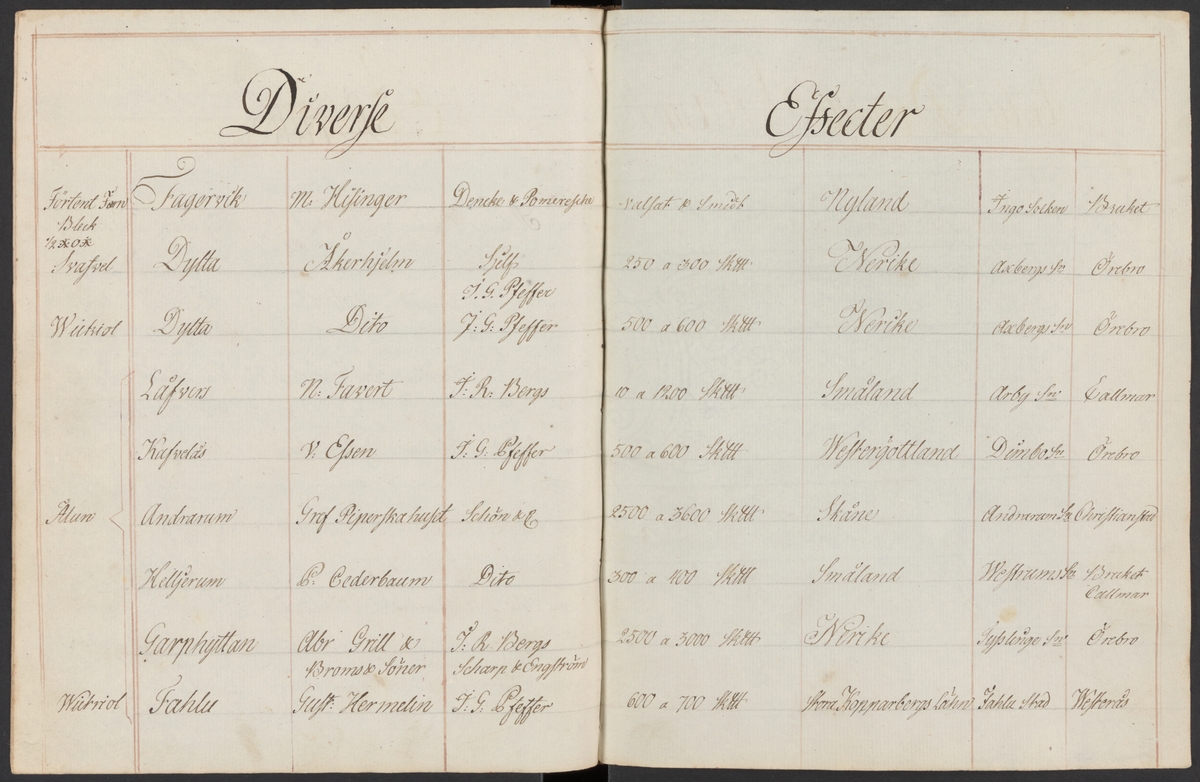 Diverse Effecter
Förtent Jern Fagervik M. Hisinger Dencke & Pomeresche valsat & Smidt Nyland Ingo Socken Bruket
Bleck
Svafvel Dylta Åkerhjelm Sjelf 250 a 300 Sk℔ Nerike Axbergs Sn Örebro
J. G. Pfeffer
Wictriol Dylta Dito J: G: Pfeffer 500 a 600 Sk℔ Nerike Axbergs Sn Örebro
Låfvers N: Favert J: R: Bergs 10 a 1200 Sk℔ Småland Arby Sn Callmar
Kafvelås V. Essen J: G: Pfeffer 500 a 600 Sk℔ Westergöttland Dimbo Sn Örebro
Alun Andrarum Gref Piperska huset Schön & C 2500 a 3600 Sk℔ Skåne Andrarum Sn Christianstad
Helljerum C: Cederbaum Dito 300 a 400 Sk℔ Småland Westrums Sn Bruket
Callmar
Garphyttan Abr Grill & J: R: Bergs 2500 a 3000 Sk℔ Nerike Tysslinge Sn Örebro
Broms & Söner Scharp & Engström
Wictriol Fahlu Gust: Hermelin J: G: Pfeffer 600 a 700 Sk℔ Stora Kopparbergs Lähn Fahlu Stad Westerås